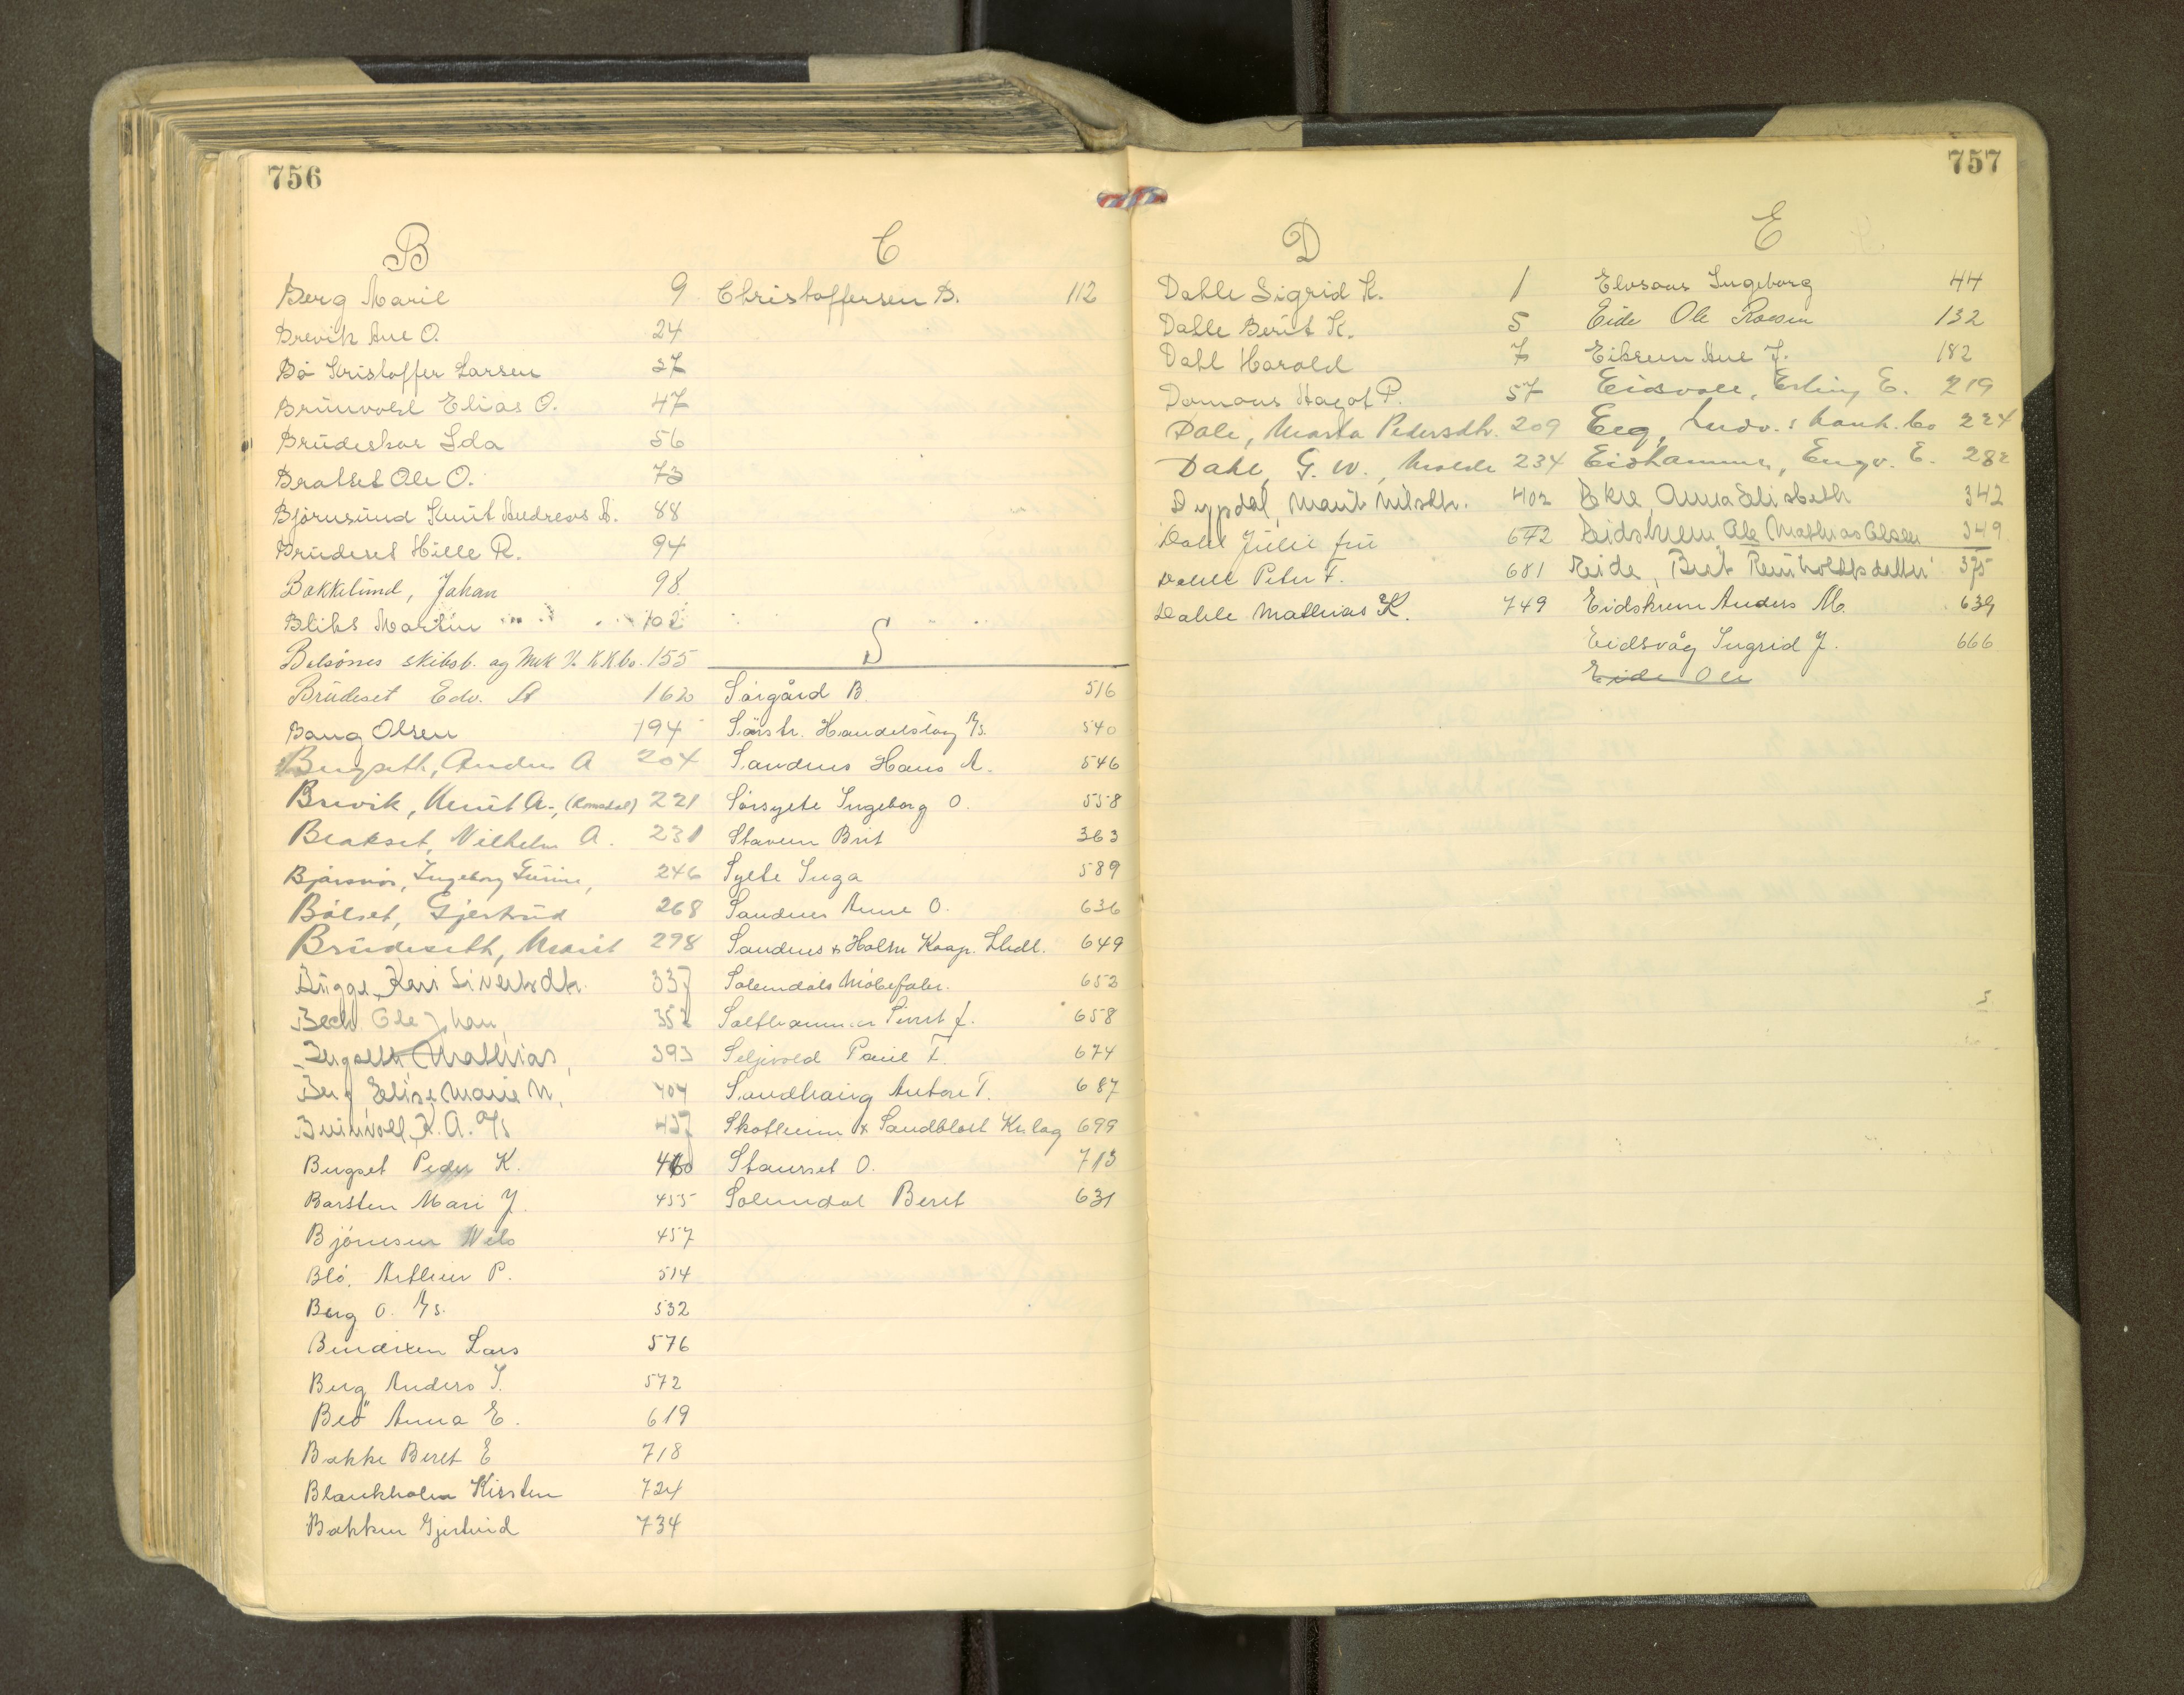 756
B
Berg Marie 9
Brevik Ane O. 24
Bø Kristoffer Larsen 37
Brunvold Elias O. 47
Brudeskar Ida 56
Bratset Ole O. 73
Björnsund Knut Andreas A. 88
Brudeset Hille R. 94
Bakkelund, Johan 98
Martin 102
Bolsönes skibsb. og Mek V. 155
Brudeset Edv. A 162
Baug Olsen 194
Bergseth, A 204
Brevik, Knut A., (Romsdal) 221
Brakset, Vilhelm A. 231
Ingeborg 246
Bölset, Gjertrud 268
Brudeseth, Marit 298
Bugge, Kari Sivertsdtr. 337
Bech Ole Johan, 352
Mathias, 393
Berg Elise Marie N. 404
K. A. A/S 437
Bugset Peder K. 460
Barsten Mari J. 455
Björnsen Nils 457
Blö. Arthur P. 514
Berg O. A/s. 532
Bendixen Lars 576
Berg Anders J. 572
Beö Anna E. 619
Bakke Beret E 718
Blankholm Kirsten 724
Bakken Gjertrud 734
C
Christoffersen B. 112
S
Sørgård B. 516
Sörstr. Handelslag A/s. 540
Sandnes Hans A. 546
Sörsylte Ingeborg O. 558
Stavem Brit 363
Sylte Inga 589
Sandnes Anne O. 636
Sandnes & Holm Koop. Lhdl. 649
Solemdals Möbelfabr. 652
Salthammer Sivert J. 658
Seljevold Paul T. 674
Sandhaug Anton T. 687
Skotheim & Sandblåst Kr.lag 699
Stavset O. 713
Solemdal Beret 631
757
D
Dahle Sigrid K. 1
Dahle Berit K. 5
Dahl Harald 7
Domaas P. 57
Dale, Marta Pedersdtr. 209
Dahl, G. W., Molde 234
Dypdal, Marit Nilsdtr. 402
Dahl Julie fru 672
Dahle Peter F. 681
Dahle Mathias K. 749
E
Elvsaas Ingeborg 44
Eide Ole 132
Eikrem Ane J. 182
Eidsvoll, Erling E. 219
Eeg, Ludv. 224
Eidhammer, Engv. E. 282
Ekre, Anna Elisbeth 342
Eidskrem, Ole Mathias Olsen 349
Eide, Brit Reinholdtsdatter 375
Eidskrem Anders M. 639
Eidsvåg Ingrid J. 666
Eide Ole